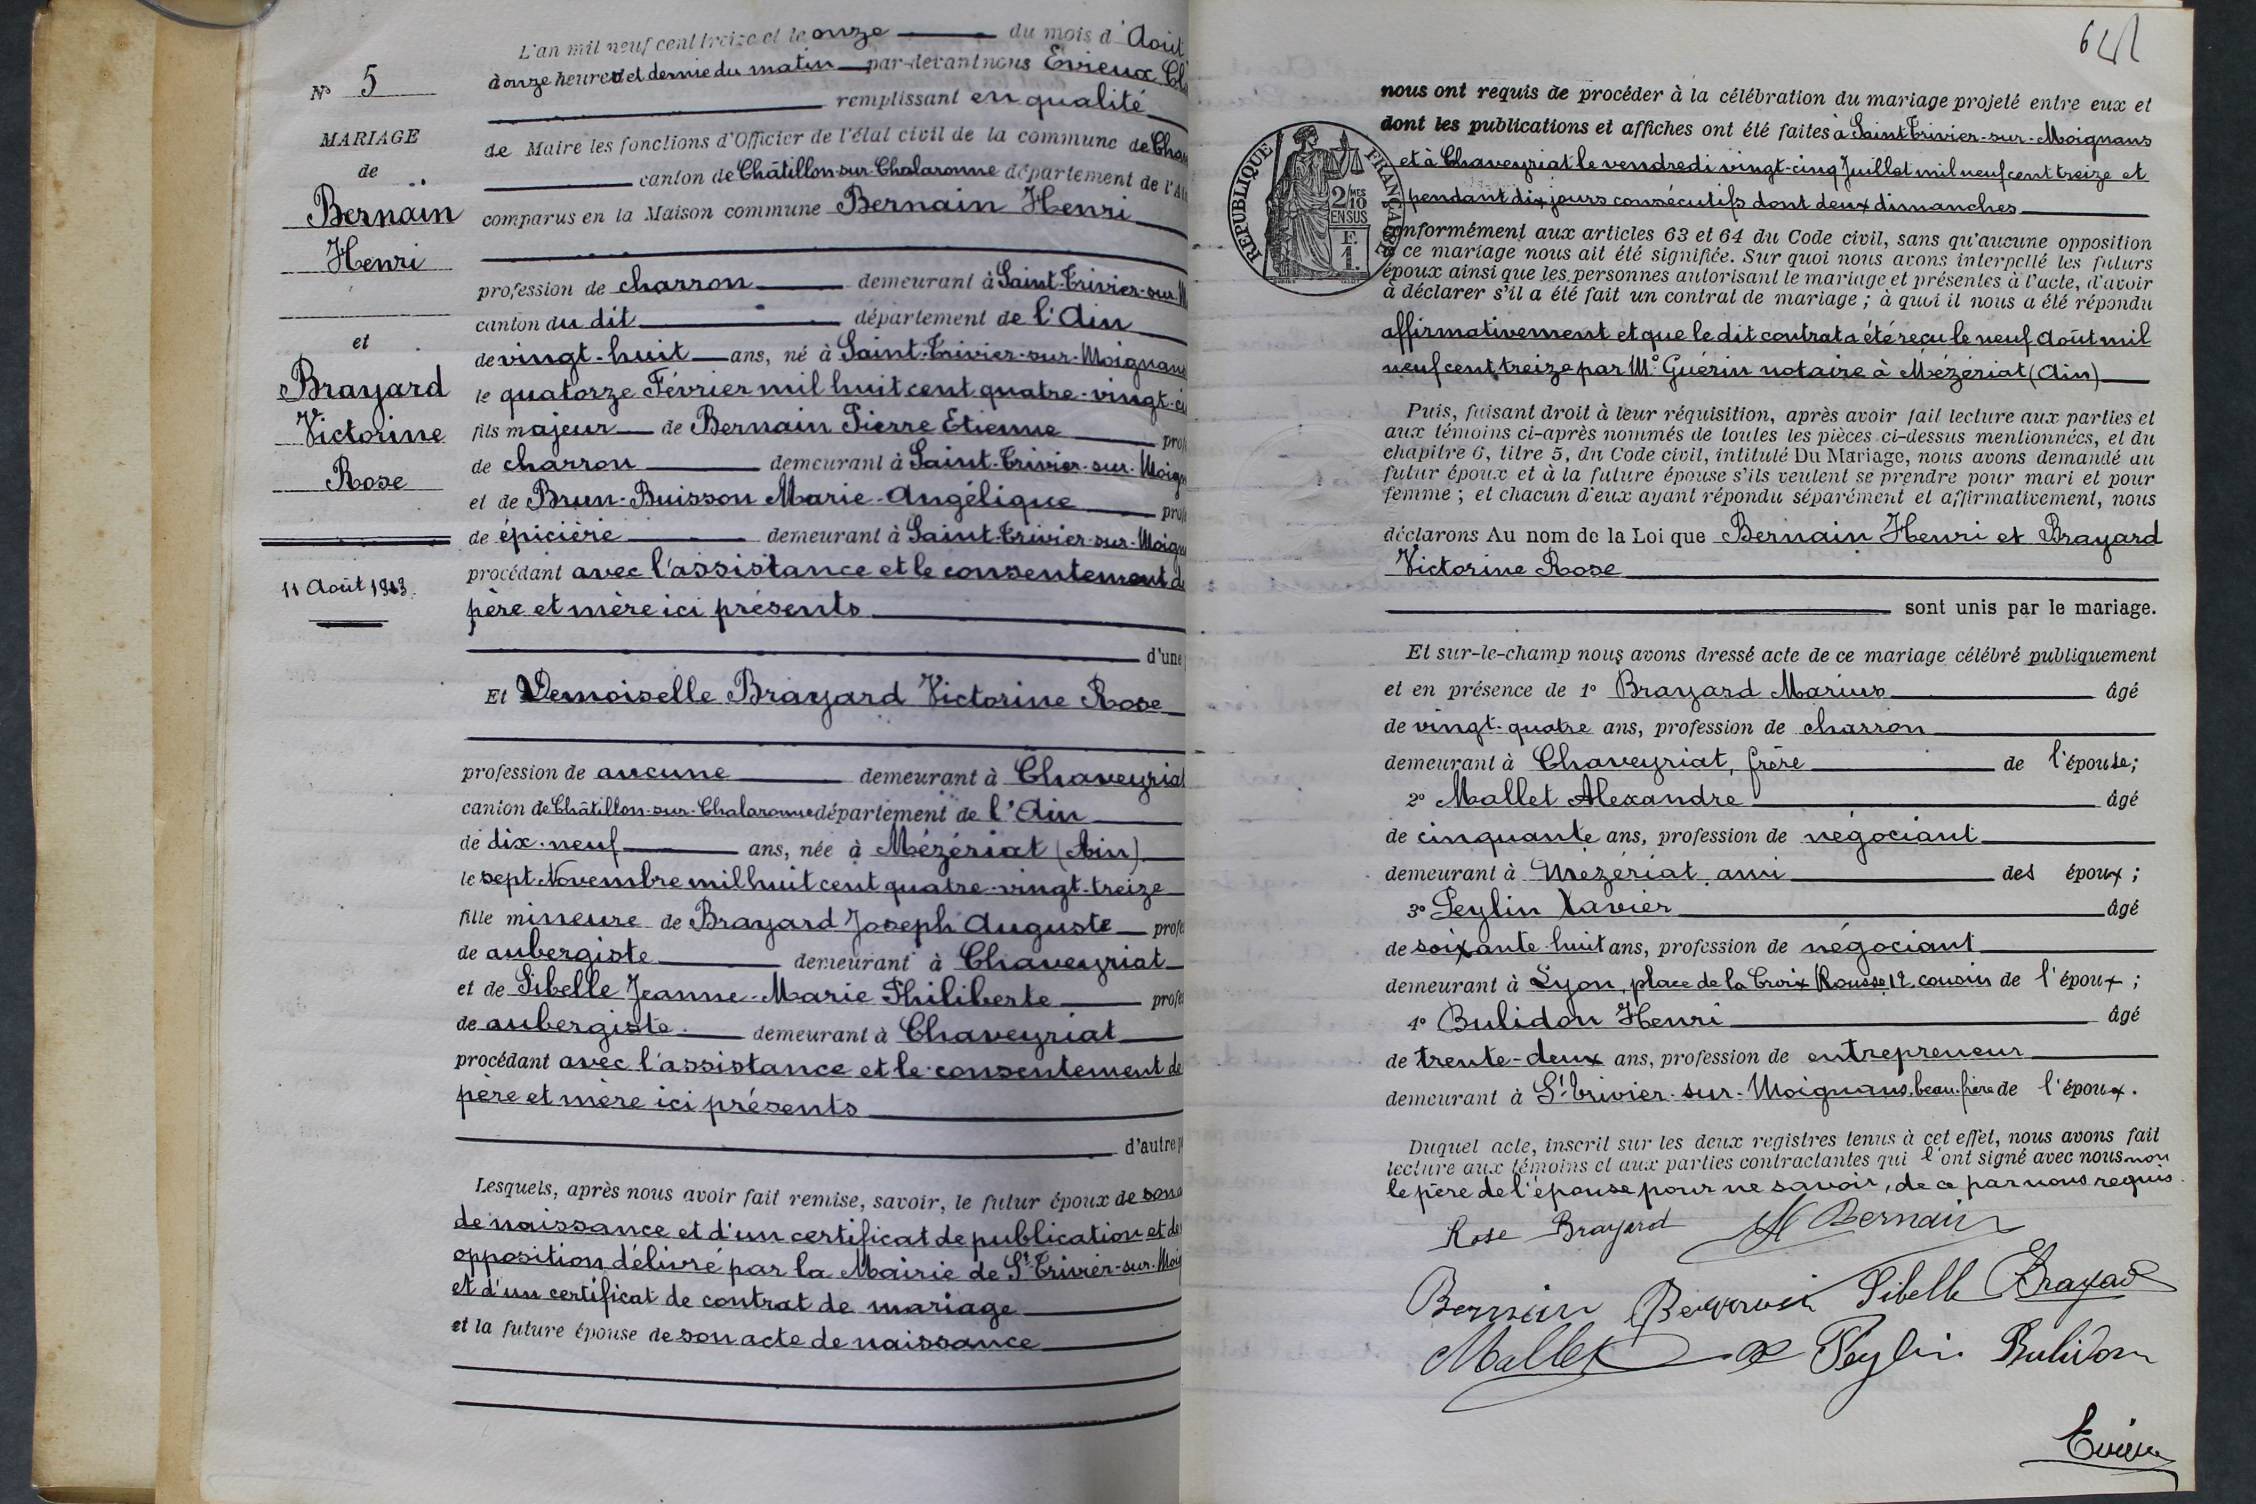 N° 5
MARIAGE
de
Bernain
Henri
et
Brayard
Victorine
Rose
11 Août 1913.
L'an mil neuf cent treize et le onze du mois d'Août
à onze heures et demie du matin par-devant nous Evieux Cl
remplissant en qualité
de Maire les fonctions d'Officier de l'état civil de la commune de Cha
canton de Châtillon-sur-Chalaronne département de l'Ai
comparus en la Maison commune Bernain Henri
profession de charron demeurant à Saint-Trivier-sur-M
canton du dit département de l'Ain
de vingt-huit ans, né à Saint-Trivier-sur-Moignans
le quatorze Février mil huit cent quatre-vingt-ci
fils majeur de Bernain Pierre Etienne prof
de charron demeurant à Saint-Trivier-sur-Moign
et de Brun-Buisson Marie-Angélique prof
de épicière demeurant à Saint-Trivier-sur-Moign
procédant avec l'assistance et le consentement de
père et mère ici présents
d'une
Et Demoiselle Brayard Victorine Rose
profession de aucune demeurant à Chaveyriat
canton de Châtillon-sur-Chalaronne département de l'Ain
de dix-neuf ans, née à Mézériat (Ain)
le sept Novembre mil huit cent quatre-vingt-treize
fille mineure de Brayard Joseph Auguste profe
de aubergiste demeurant à Chaveyriat
et de Sibelle Jeanne-Marie Philiberte profe
de aubergiste demeurant à Chaveyriat
procédant avec l'assistance et le consentement de
père et mère ici présents
d'autre p
Lesquels, après nous avoir fait remise, savoir, le futur époux de son a
de naissance et d'un certificat de publication et de
opposition délivré par la Mairie de St Trivier-sur-Moig
et d'un certificat de contrat de mariage
et la future épouse de son acte de naissance
nous ont requis de procéder à la célébration du mariage projeté entre eux et
dont les publications et affiches ont été faites à Saint Trivier-sur-Moignans
et à Chaveyriat le vendredi vingt-cinq Juillet mil neuf cent treize et
pendant dix jours consécutifs dont deux dimanches
conformément aux articles 63 et 64 du Code civil, sans qu'aucune opposition
à ce mariage nous ait été signifiée. Sur quoi nous avons interpellé les futurs
époux ainsi que les personnes autorisant le mariage et présentes à l'acte, d'avoir
à déclarer s'il a été fait un contrat de mariage ; à quoi il nous a été répondu
affirmativement et que le dit contrat a été reçu le neuf Août mil
neuf cent treize par Me Guérin notaire à Mézériat (Ain)
RÉPUBLIQUE FRANÇAISE
2/10 MES
EN SUS
F.
1.
Puis, faisant droit à leur réquisition, après avoir fait lecture aux parties et
aux témoins ci-après nommés de toutes les pièces ci-dessus mentionnées, et du
chapitre 6, titre 5, du Code civil, intitulé Du Mariage, nous avons demandé au
futur époux et à la future épouse s'ils veulent se prendre pour mari et pour
femme ; et chacun d'eux ayant répondu séparément et affirmativement, nous
déclarons Au nom de la Loi que Bernain Henri et Brayard
Victorine Rose
sont unis par le mariage.
Et sur-le-champ nous avons dressé acte de ce mariage célébré publiquement
et en présence de 1° Brayard Marius âgé
de vingt-quatre ans, profession de charron
demeurant à Chaveyriat, frère de l'épouse;
2° Mallet Alexandre âgé
de cinquante ans, profession de négociant
demeurant à Mézériat, ami des époux ;
3° Peylin Xavier âgé
de soixante huit ans, profession de négociant
demeurant à Lyon, place de la Croix Rousse 12, cousin de l'époux ;
4° Bulidon Henri âgé
de trente-deux ans, profession de entrepreneur
demeurant à St Trivier-sur-Moignans, beau-frère de l'époux.
Duquel acte, inscrit sur les deux registres tenus à cet effet, nous avons fait
lecture aux témoins et aux parties contractantes qui l'ont signé avec nous non
le père de l'épouse pour ne savoir, de ce par nous requis.
Rose Brayard H Bernain
Bernain Sibelle Brayard
Mallet Peylin Bulidon
Evieux